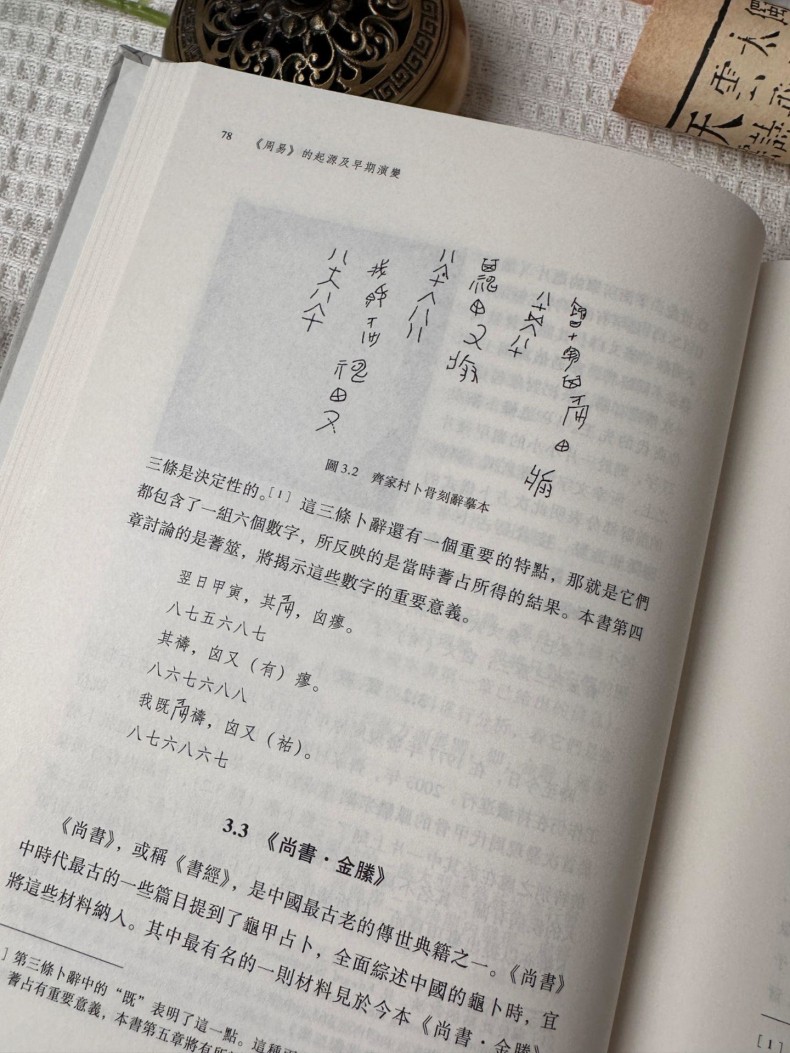 78
《周易》的起源及早期演變
圖 3.2 齊家村卜骨刻辭摹本
三條是決定性的。[1] 這三條卜辭還有一個重要的特點，那就是它們
都包含了一組六個數字，所反映的是當時蓍占所得的結果。本書第四
章討論的是蓍筮，將揭示這些數字的重要意義。
翌日甲寅，其，囟瘳。
八七五六八七
其禱，囟又（有）瘳。
八六七六八八
我既禱，囟又（祐）。
八七六八六七
3.3 《尚書·金縢》
《尚書》，或稱《書經》，是中國最古老的傳世典籍之一。《尚書》
中時代最古的一些篇目提到了龜甲占卜，全面綜述中國的龜卜時，宜
將這些材料納入。其中最有名的一則材料見於今本《尚書·金縢》
] 第三條卜辭中的“既”表明了這一點。這種
蓍占有重要意義，本書第五章將有所
[1]